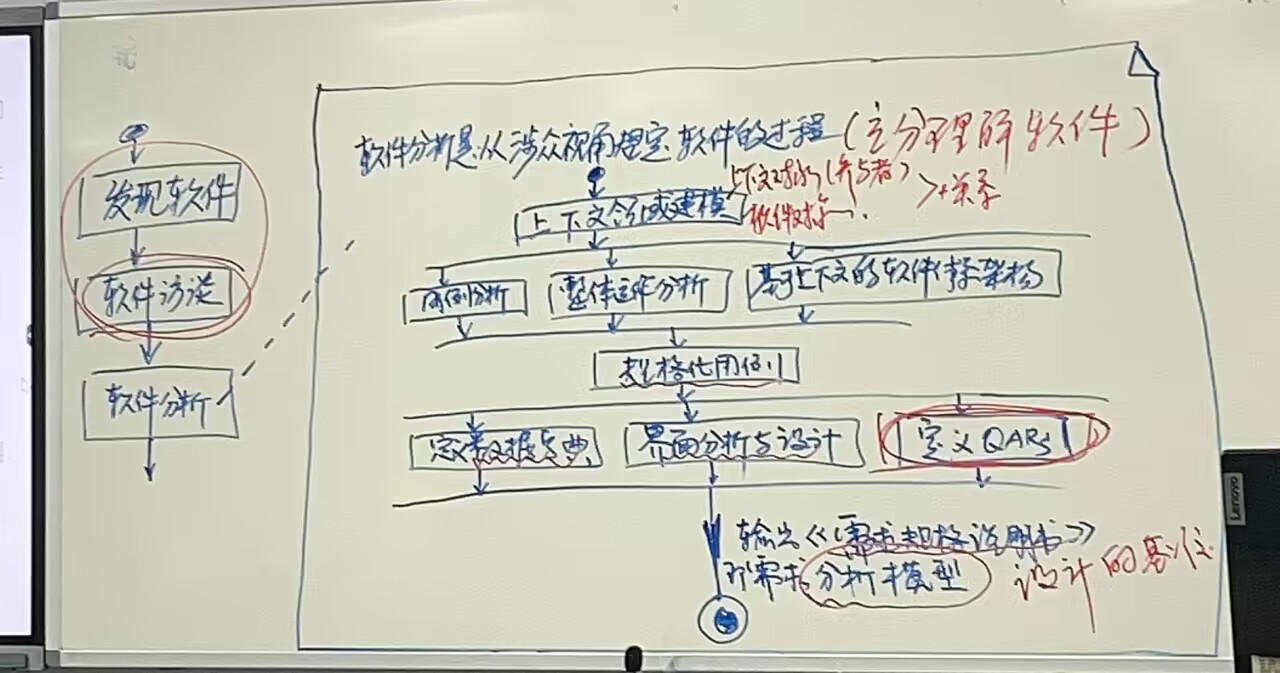 发现软件
软件访谈
软件分析
软件分析是从涉众视角规定软件的过程(充分理解软件)
上下文领域建模
上下文对象(参与者)
软件对象
>+关系
用例分析
整体运作分析
基于上下文的软件体系架构
规格化用例
定义数据字典
界面分析与设计
定义QARs
输出《需求规格说明书》
即需求分析模型
设计的基础
Lenovo